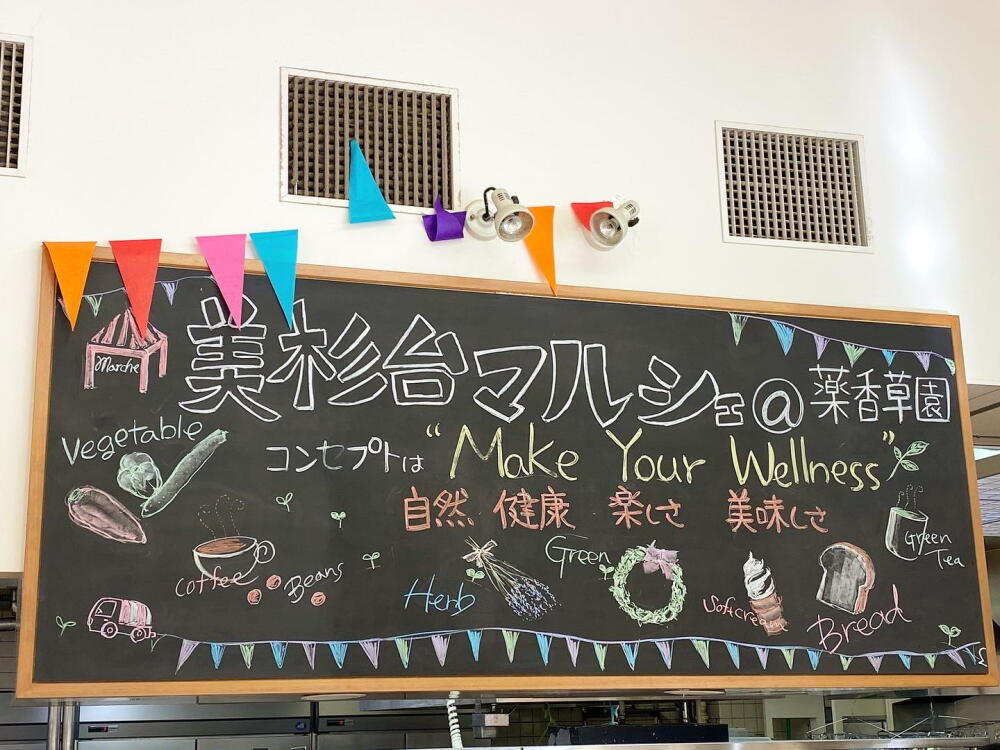 美杉台マルシェ@薬香草園
Marche
コンセプトは "Make Your Wellness"
Vegetable
自然 健康 楽しさ 美味しさ
Coffee
Beans
Herb
Green
Softcream
Bread
Green
Tea